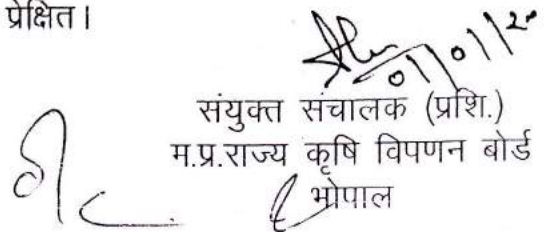 प्रेक्षित।
01/01/20
संयुक्त संचालक (प्रशि.)
म.प्र.राज्य कृषि विपणन बोर्ड
भोपाल